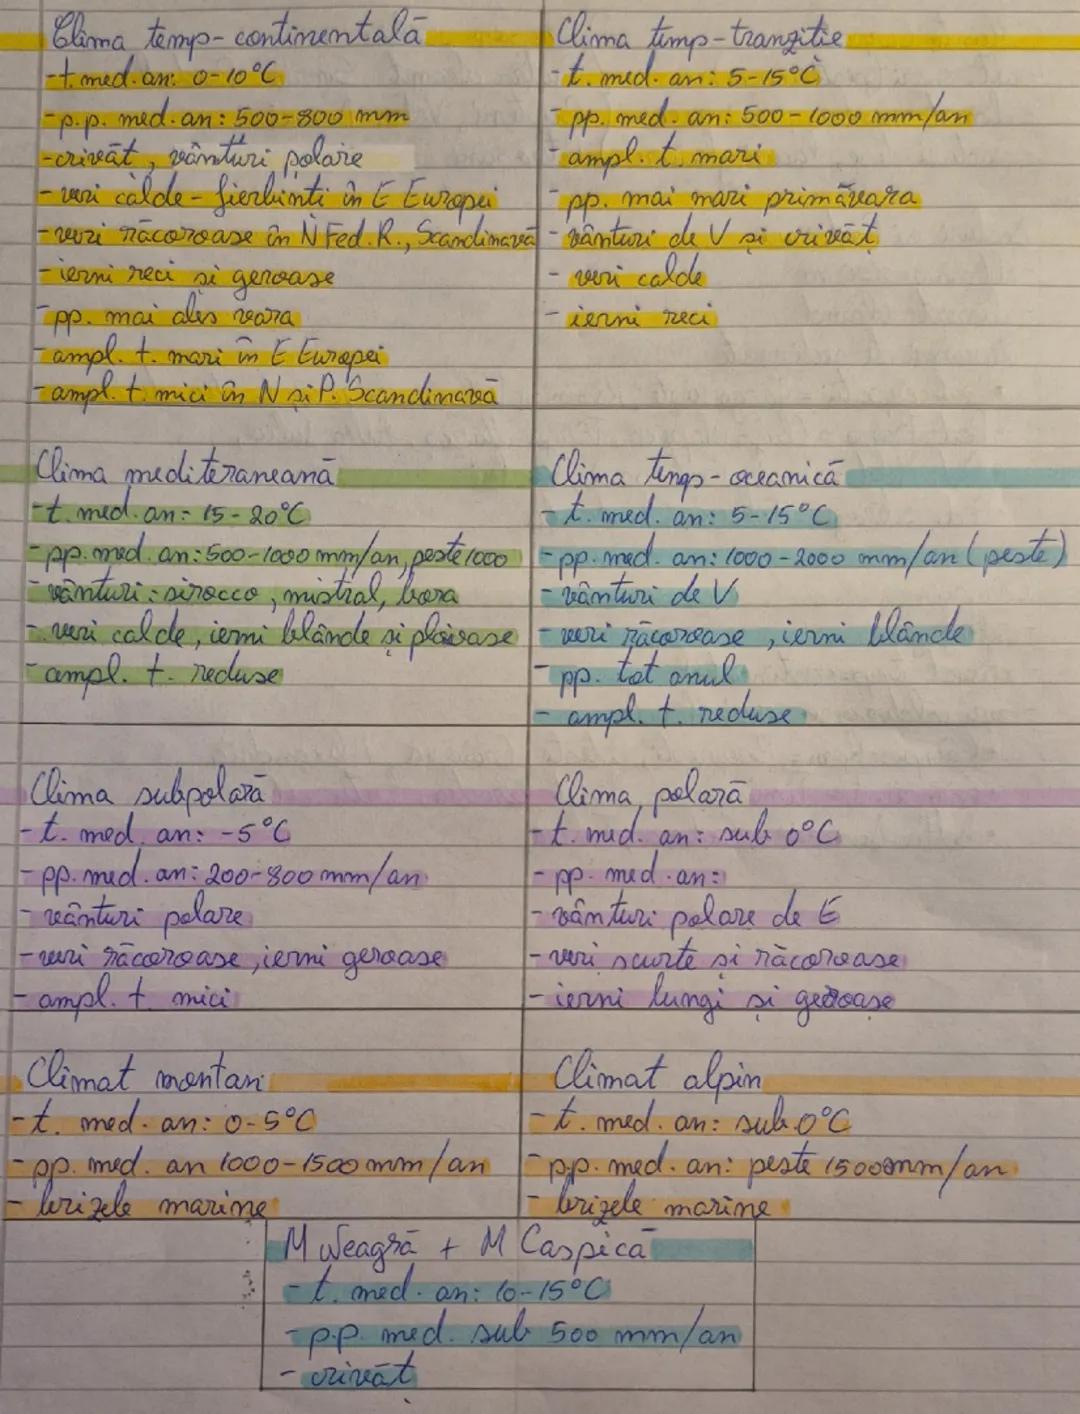 Clima temp-continentală
- t. med. an: 0-10°C
- p.p. med. an: 500-800 mm
- crivăt, vânturi polare
- veri calde - fierbinti în E Europei
- veri răcoroase în N Fed. R., Scandinavă
- ierni reci si geroase
- pp. mai ales vara
- ampl. t. mari în E Europei
- ampl. t. mici în N si P. Scandinavă
Clima temp-tranzitie
- t. med. an: 5-15°C
- pp. med. an: 500-1000 mm/an
- ampl. t. mari
- pp. mai mari primăvara
- vânturi de V si crivăt
- veri calde
- ierni reci
Clima mediteraneană
- t. med. an: 15-20°C
- pp. med. an: 500-1000 mm/an, peste 1000
- vânturi: sirocco, mistral, bora
- veri calde, ierni blânde si ploioase
- ampl. t. reduse
Clima temp-oceanică
- t. med. an: 5-15°C
- pp. med. an: 1000-2000 mm/an (peste)
- vânturi de V
- veri răcoroase, ierni blânde
- pp. tot anul
- ampl. t. reduse
Clima subpolară
- t. med. an: -5°C
- pp. med. an: 200-800 mm/an
- vânturi polare
- veri răcoroase, ierni geroase
- ampl. t. mici
Clima polară
- t. med. an: sub 0°C
- pp. med. an:
- vânturi polare de E
- veri scurte si răcoroase
- ierni lungi si geroase
Climat montan
- t. med. an: 0-5°C
- pp. med. an 1000-1500 mm/an
- brizele marine
Climat alpin
- t. med. an: sub 0°C
- p.p. med. an: peste 1500mm/an
- brizele marine
M Neagră + M Caspică
- t. med. an: 10-15°C
- p.p. med. sub 500 mm/an
- crivăt